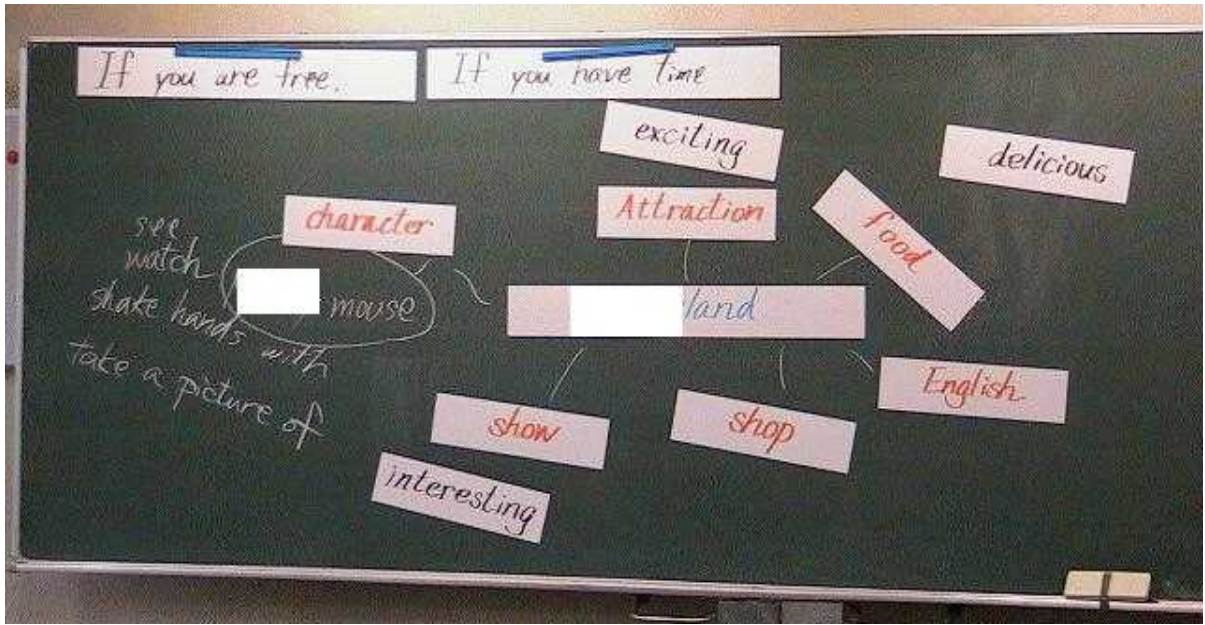 If you are free.
If you have time
exciting
delicious
character
Attraction
food
see
watch
mouse
shake hands with
take a picture of
land
English
show
shop
interesting